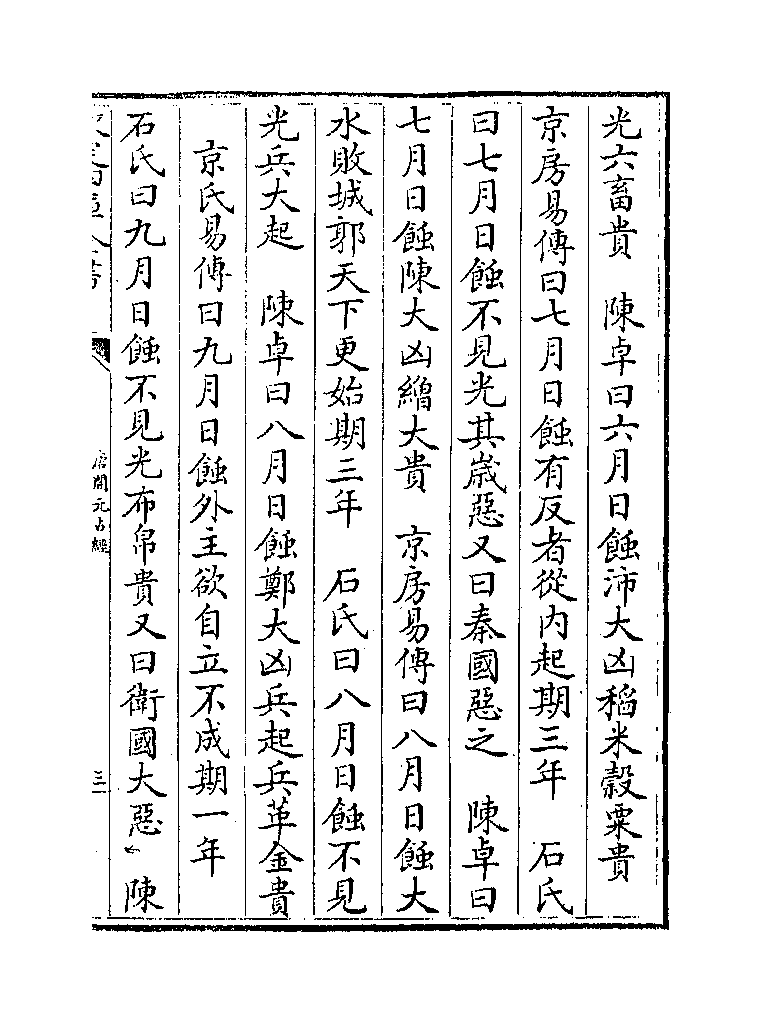 光六畜貴　陳卓曰六月日蝕沛大凶稻米穀粟貴
京房易傳曰七月日蝕有反者從内起期三年　石氏
曰七月日蝕不見光其嵗惡又曰秦國惡之　陳卓曰
七月日蝕陳大凶繒大貴　京房易傳曰八月日蝕大
水敗城郭天下更始期三年　石氏曰八月日蝕不見
光兵大起　陳卓曰八月日蝕鄭大凶兵起兵革金貴
京氏易傳曰九月日蝕外主欲自立不成期一年
石氏曰九月日蝕不見光布帛貴又曰衛國大惡　陳
唐開元占經
三